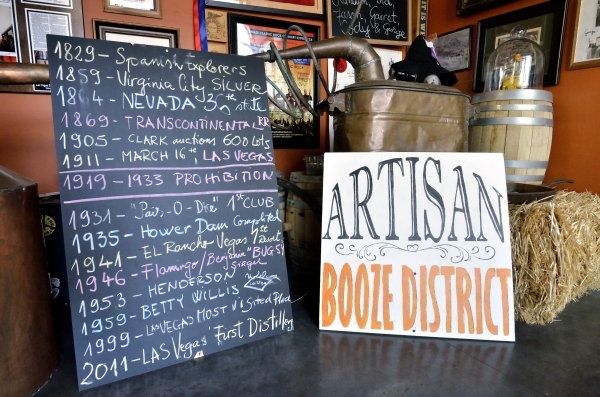 1829 - Spanish Explorers
1859 - Virginia City SILVER
1864 - NEVADA 36th state
1869 - TRANSCONTINENTAL RR
1905 - CLARK auctions 600 Lots
1911 - MARCH 16th, LAS VEGAS
1919 - 1933 PROHIBITION
1931 - "Pair-O-Dice" 1st CLUB
1935 - Hower Dam Completed
1941 - EL Rancho Vegas 1st
1946 - Flamingo/Benjamin "BUGSY
Siegel
1953 - HENDERSON
1959 - BETTY WILLIS
1999 - LAS VEGAS MOST Visited Place
2011 - LAS Vegas' First Distillery
ARTISAN
BOOZE DISTRICT